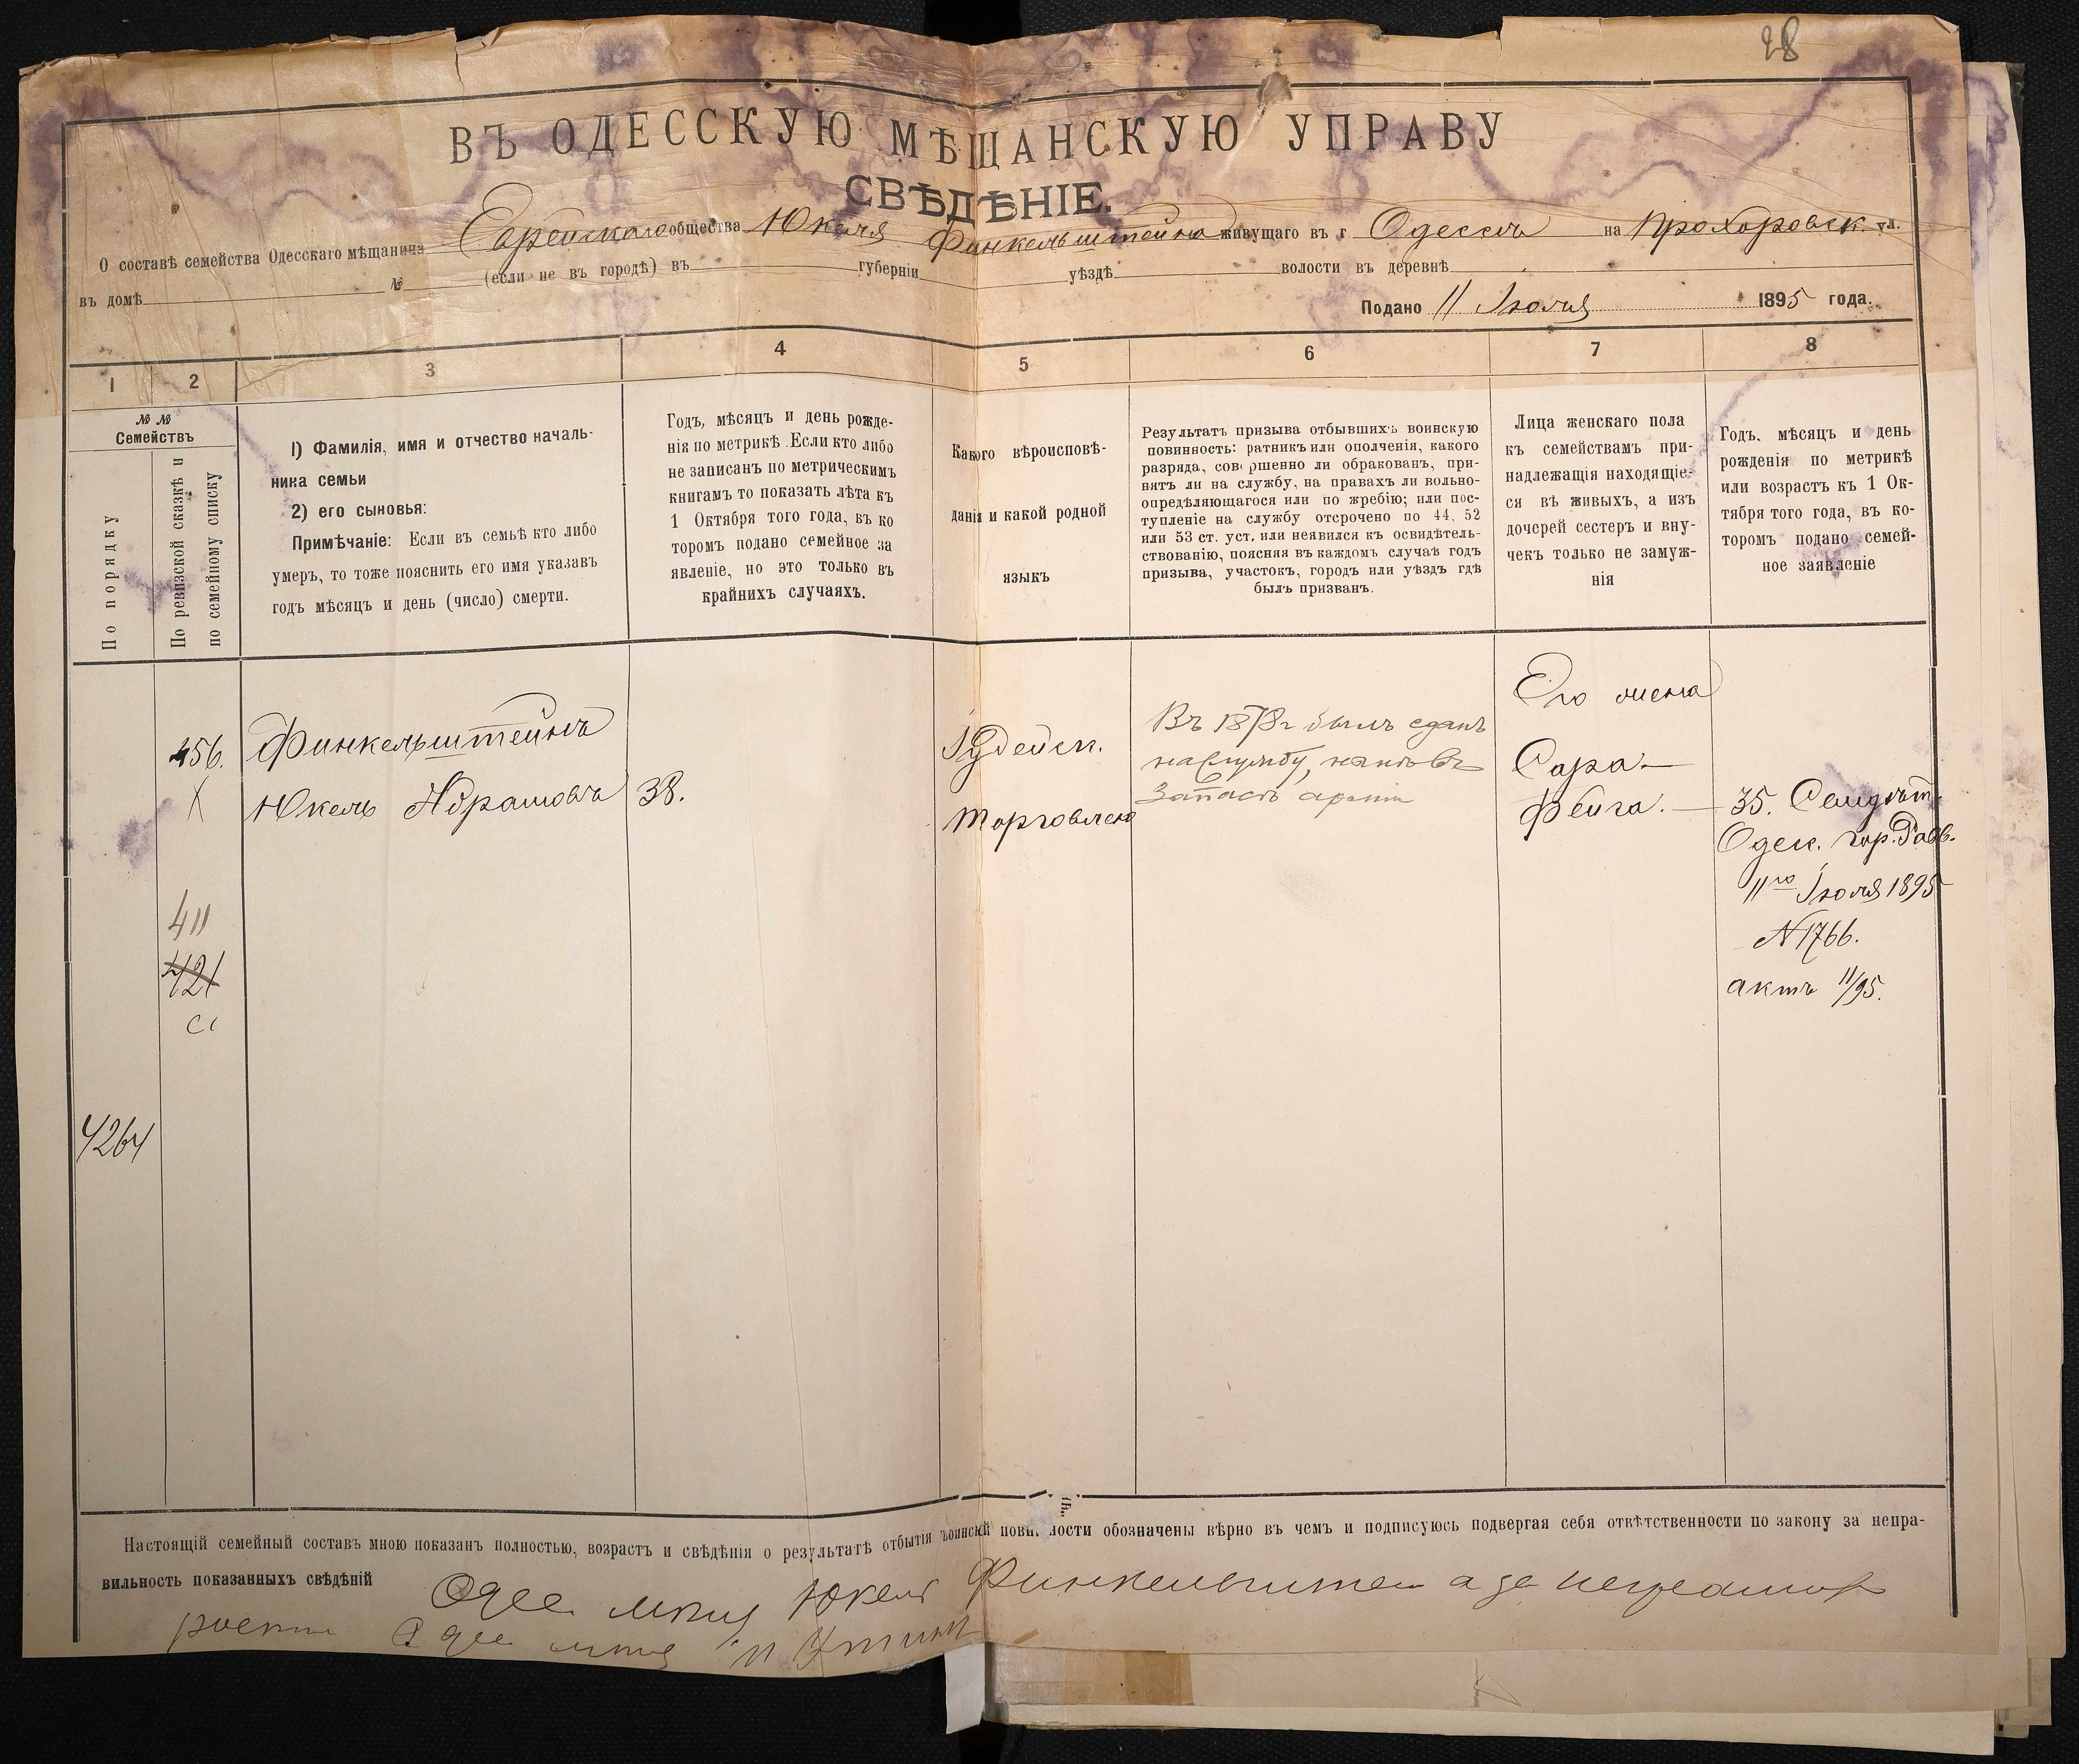 28
ВЪ ОДЕССКУЮ МѢЩАНСКУЮ УПРАВУ
СВѢДѢНІЕ.
О составѣ семейства Одесскаго мѣщанина Еврейскаго общества Юкеля Финкельштейна живущаго въ г. Одессѣ на Прохоровск. ул.
въ домѣ № (если не въ городѣ) въ губерніи уѣздѣ волости въ деревнѣ
Подано 11 Іюля 1895 года.
1 2 3 4 5 6 7 8
№ №
Семействъ
По порядку
По ревизской сказкѣ и
по семейному списку
1) Фамилія, имя и отчество началь-
ника семьи
2) его сыновья:
Примѣчаніе: Если въ семьѣ кто либо
умеръ, то тоже пояснить его имя указавъ
годъ мѣсяцъ и день (число) смерти.
Годъ, мѣсяцъ и день рожде-
нія по метрикѣ. Если кто либо
не записанъ по метрическимъ
книгамъ то показать лѣта къ
1 Октября того года, въ ко
торомъ подано семейное за
явленіе, но это только въ
крайнихъ случаяхъ.
Какого вѣроисповѣ-
данія и какой родной
языкъ
Результатъ призыва отбывшихъ воинскую
повинность: ратникъ или ополченія, какого
разряда, совершенно ли обракованъ, при-
нятъ ли на службу, на правахъ ли вольно-
опредѣляющагося или по жребію; или пос-
тупленіе на службу отсрочено по 44, 52
или 53 ст. уст. или неявился къ освидѣтель-
ствованію, поясняя въ каждомъ случаѣ годъ
призыва, участокъ, городъ или уѣздъ гдѣ
былъ призванъ.
Лица женскаго пола
къ семействамъ при-
надлежащія находящіе-
ся вѣ живыхъ, а изъ
дочерей сестеръ и вну-
чекъ только не замуж-
нія
Годъ, мѣсяцъ и день
рожденія по метрикѣ
или возрастъ къ 1 Ок-
тября того года, въ ко-
торомъ подано семей-
ное заявленіе
456.
Х
Финкельштейнъ
Юкель Абрамовъ
38.
Іудейск.
торговлею
Въ 1878 г былъ сданъ
на службу, нынѣ въ
Запасѣ арміи
Его жена
Сара-
Фейга.
35.
Одес. гор. Равв.
11го Іюля 1895
N 1766.
актъ 11/95.
411
421
4264
Настоящій семейный составъ мною показанъ полностью, возрастъ и свѣдѣнія о результатѣ отбытія воинской повинности обозначены вѣрно въ чемъ и подписуюсь подвергая себя отвѣтственности по закону за непра-
вильность показанныхъ свѣдѣній
Одес. Юкель Финкельштейн а за неграмот